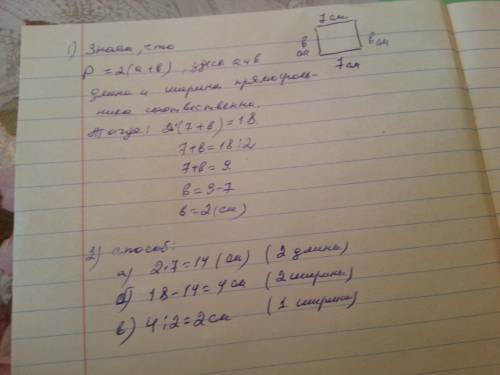 7 см
1) Знаем, что
в см
в см
P = 2(a+в), здесь a и в
7 см
длина и ширина прямоуголь-
ника соотвественно.
Тогда: 2·(7+в) = 18
7+в = 18:2
7+в = 9
в = 9-7
в = 2 (см)
2) способ:
а) 2·7 = 14 (см) (2 длины)
б) 18-14 = 4 см (2 ширины)
в) 4:2 = 2 см (1 ширина)